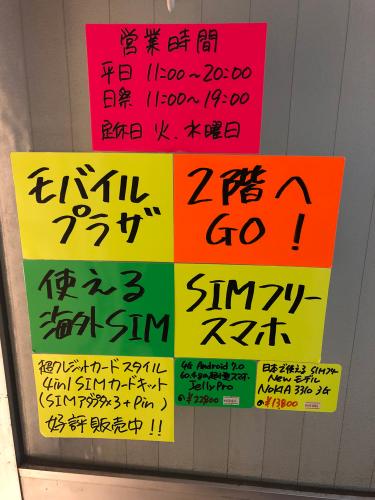 営業時間
平日 11:00～20:00
日祭 11:00～19:00
定休日 火.水曜日
モバイル
プラザ
2階へ
GO!
使える
海外SIM
SIMフリー
スマホ
超クレジットカードスタイル
4in1 SIMカードキット
(SIMアダプタ×3+Pin)
好評販売中!!
4G Android 7.0
Jelly Pro
¥22800
日本で使える SIMフリー
New モデル
NOKIA 3310 3G
¥13800